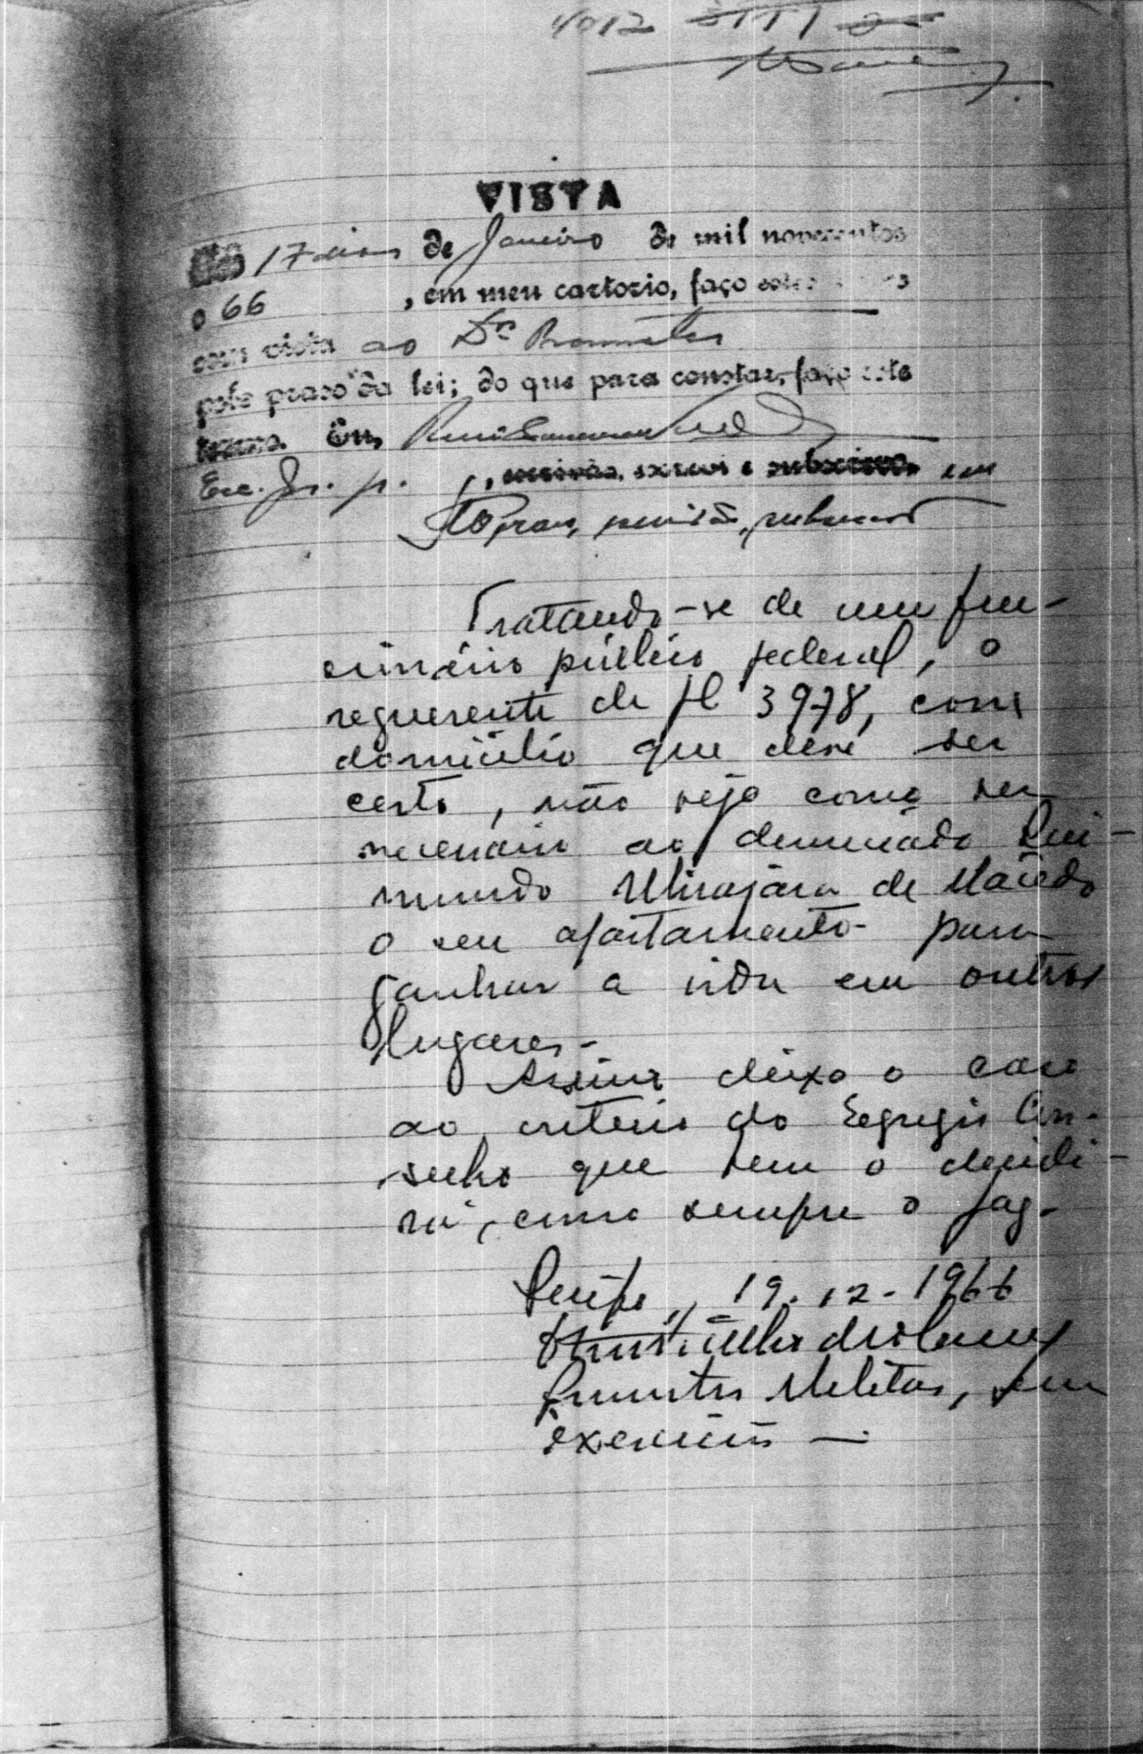 4012
VISTA
17 dias de Janeiro de mil novecentos
e 66, em meu cartorio, faço estes
com vista ao Dr. Promotor
pelo praso da lei; do que para constar, faço este
termo. Eu,
Esc. Jr. p., escrivão, escrevi e subscrevo. eu
escrivão, subscrevi
Tratando-se de um fun-
cionário público federal, o
requerente de fl 3978, com
domicílio que deve ser
certo, não vejo como ser
necessário ao denunciado Rai-
mundo Ubirajara de Macedo
o seu afastamento para
ganhar a vida em outros
lugares.-
Assim deixo o caso
ao critério do Egregio Con-
selho que bem o decidi-
rá, como sempre o faz.
Recife, 19.12-1966
Promotor Militar, em
exercício —